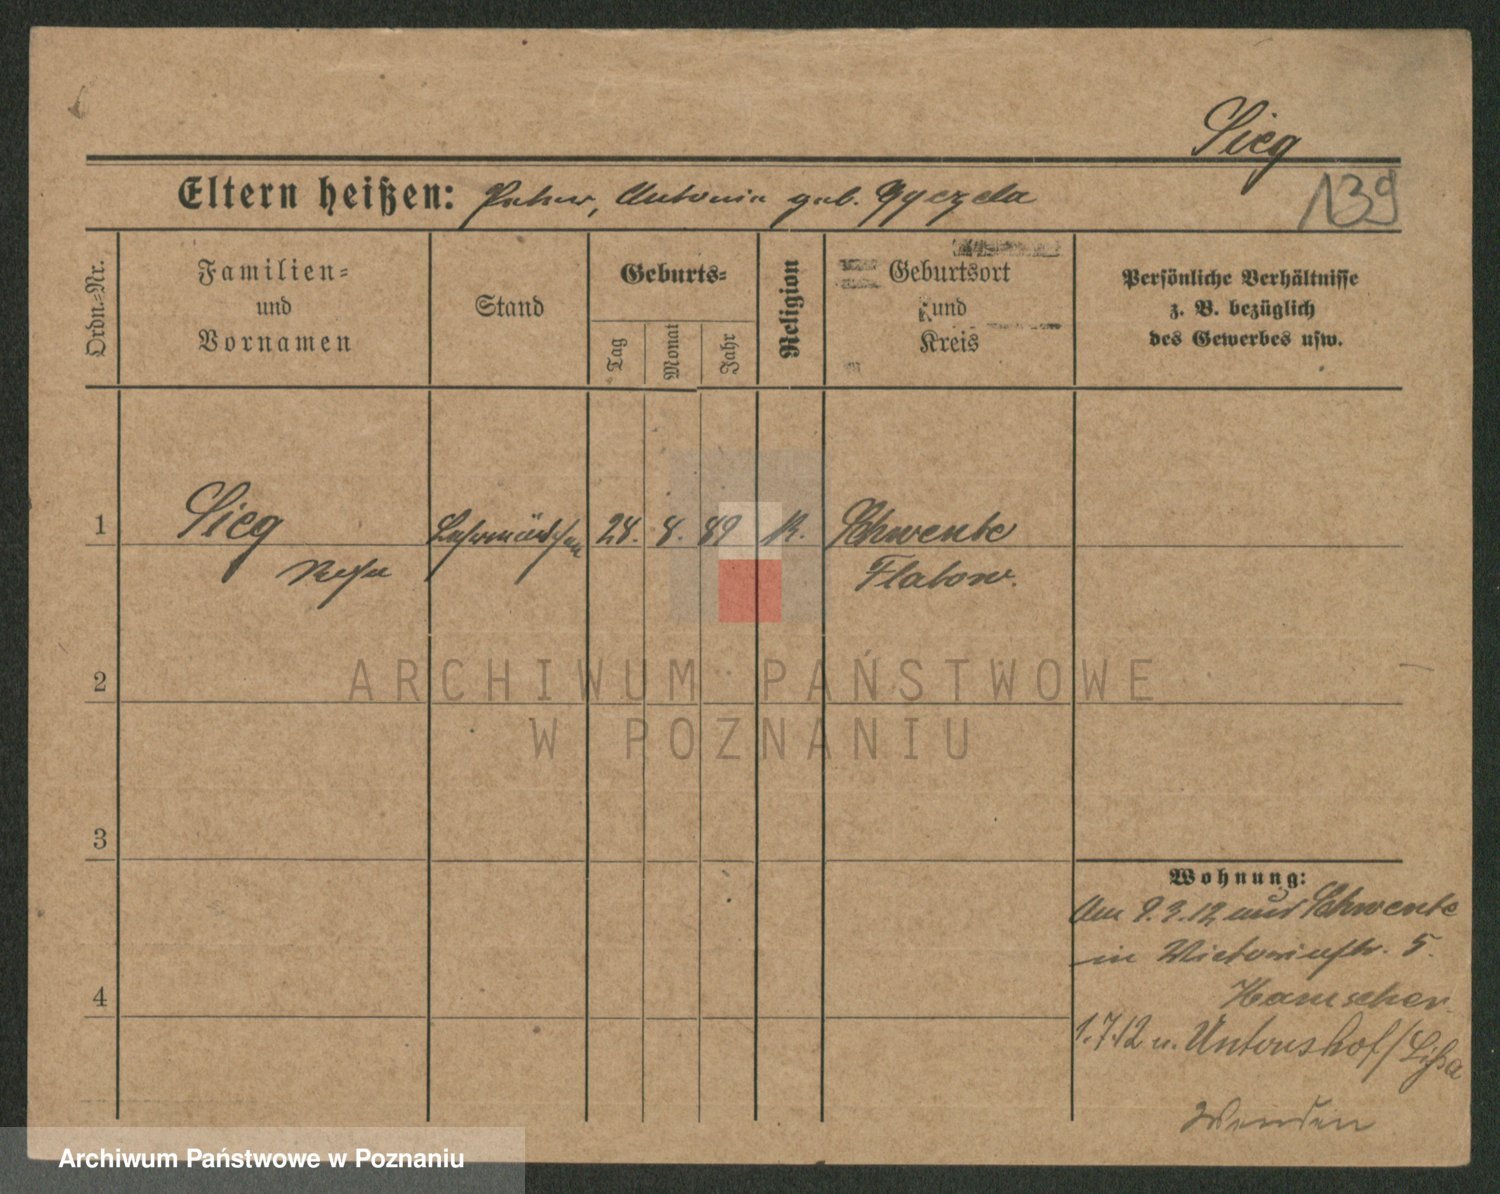 Sieg
139
Eltern heißen: Peter, Antonie geb.
Ordn.-Nr.
Familien-
und
Vornamen
Stand
Geburts-
Tag
Monat
Jahr
Religion
Geburtsort
und
Kreis
Persönliche Verhältnisse
z. B. bezüglich
des Gewerbes usw.
1
Sieg
Lehrmädchen
28. 8. 89
K.
Schwente
Flatow.
2
ARCHIWUM PAŃSTWOWE
W POZNANIU
3
4
Wohnung:
Am 9.3.12 aus Schwente
in Victoriastr. 5.
Hamscher
1.7.12 n. Antonshof/Lissa
Archiwum Państwowe w Poznaniu